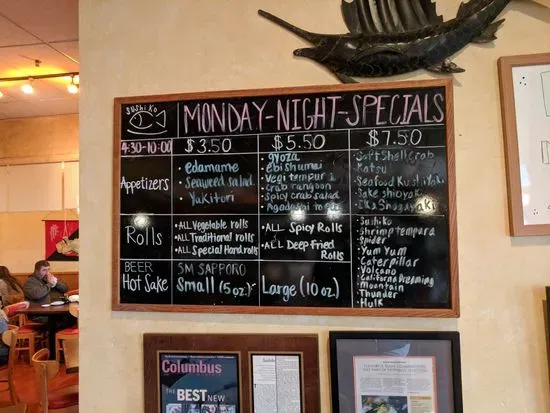 SUSHI KO
MONDAY-NIGHT-SPECIALS
4:30-10:00 $3.50 $5.50 $7.50
Appetizers
• edamame
• Seaweed salad
• Yakitori
• gyoza
• ebi shumai
• Vegi tempura
• crab rangoon
• Spicy crab salad
• Agadashi tofu
• Soft Shell Crab
• Katsu
• Seafood Kushiyaki
• Sake shioyaki
• Ika Shogayaki
Rolls
• ALL Vegetable rolls
• ALL Traditional rolls
• ALL Special Hand rolls
• ALL Spicy Rolls
• ALL Deep Fried
Rolls
• Sushiko
• Shrimp tempura
• Spider
• Yum Yum
• Caterpillar
• Volcano
• California Dreaming
• Mountain
• Thunder
• Hulk
BEER
Hot Sake
SM SAPPORO
Small (5 oz.)
Large (10 oz.)
Columbus
THE BEST NEW